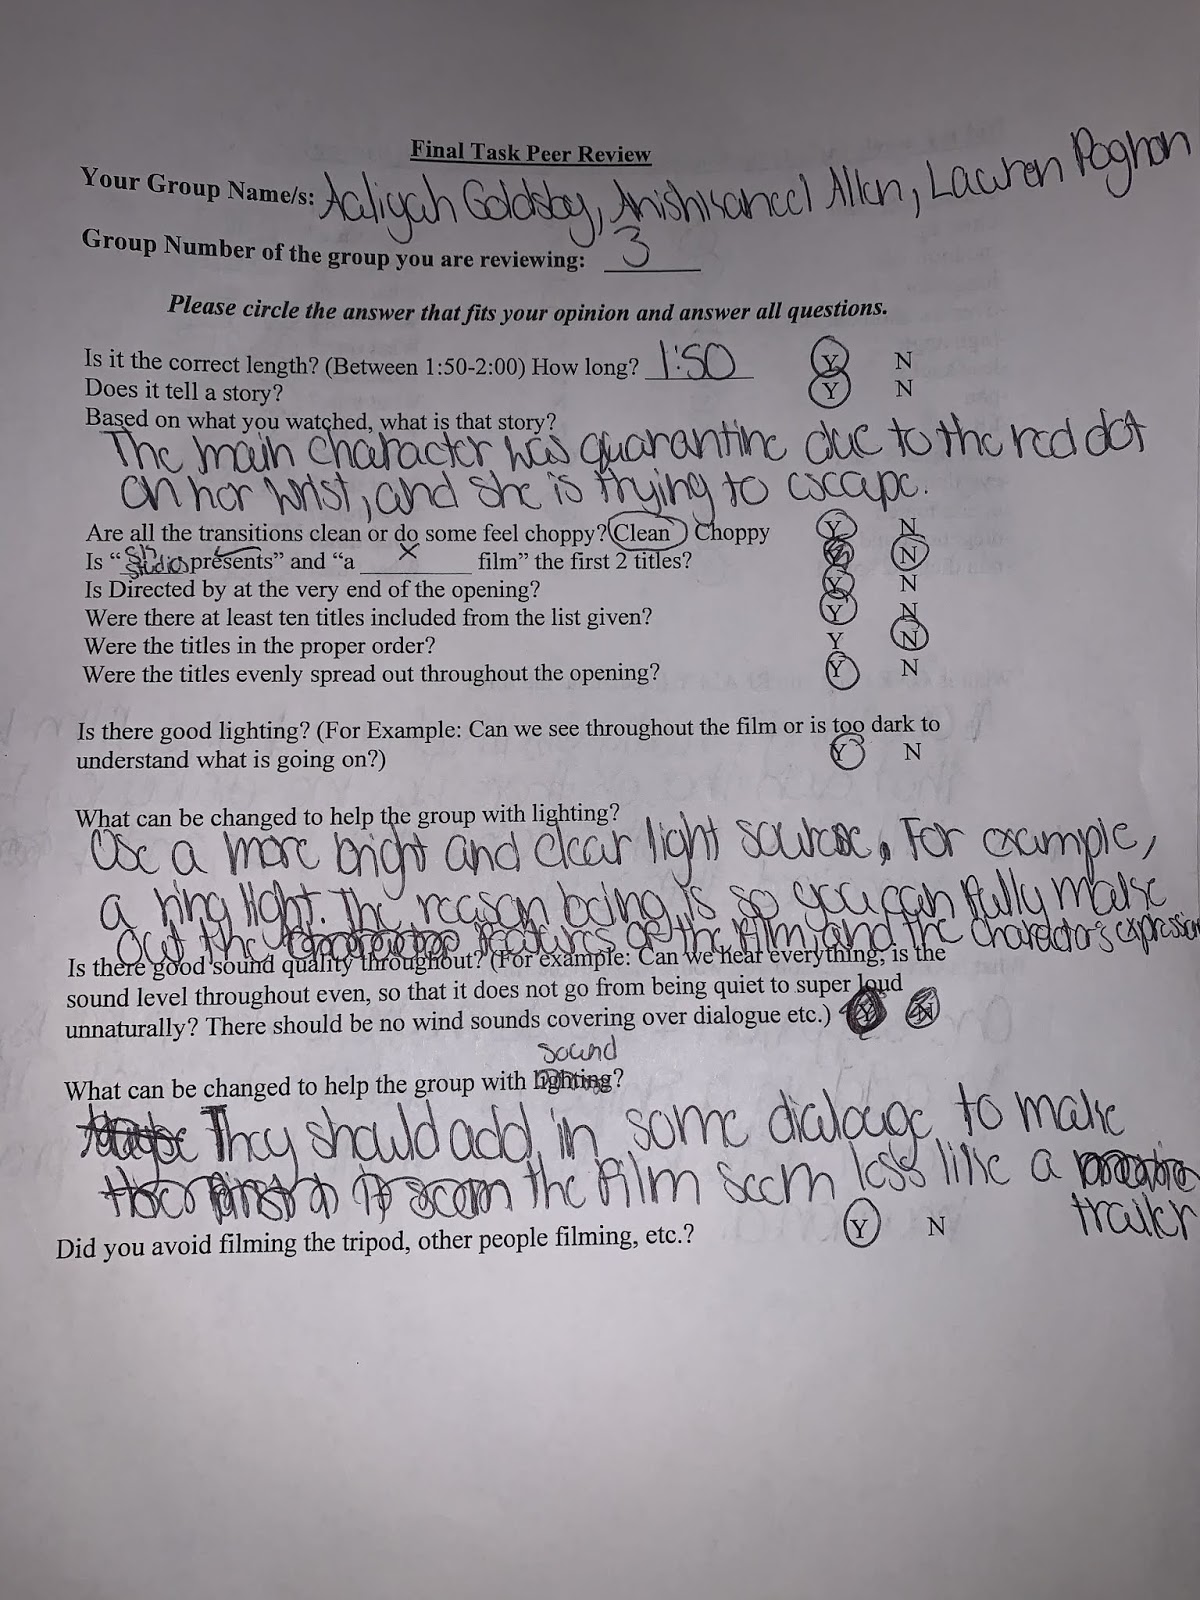 Final Task Peer Review
Your Group Name/s: Aaliyah Goldsby, Allen, Lauren
Group Number of the group you are reviewing: 3
Please circle the answer that fits your opinion and answer all questions.
Is it the correct length? (Between 1:50-2:00) How long? 1:50 Y N
Does it tell a story? Y N
Based on what you watched, what is that story?
The main character was quarantine due to the red dot
on her wrist, and she is trying to escape.
Are all the transitions clean or do some feel choppy? Clean Choppy Y N
Is “ Studios presents” and “a X film” the first 2 titles? Y N
Is Directed by at the very end of the opening? Y N
Were there at least ten titles included from the list given? Y N
Were the titles in the proper order? Y N
Were the titles evenly spread out throughout the opening? Y N
Is there good lighting? (For Example: Can we see throughout the film or is too dark to
understand what is going on?) Y N
What can be changed to help the group with lighting?
Use a more bright and clear light source. For example,
a ring light. The reason being is so you can fully make
out the features of the film and the character's expression
Is there good sound quality throughout? (For example: Can we hear everything, is the
sound level throughout even, so that it does not go from being quiet to super loud
unnaturally? There should be no wind sounds covering over dialogue etc.) Y N
sound
What can be changed to help the group with lighting?
They should add in some dialouge to make
the film seem less like a
trailer
Did you avoid filming the tripod, other people filming, etc.? Y N